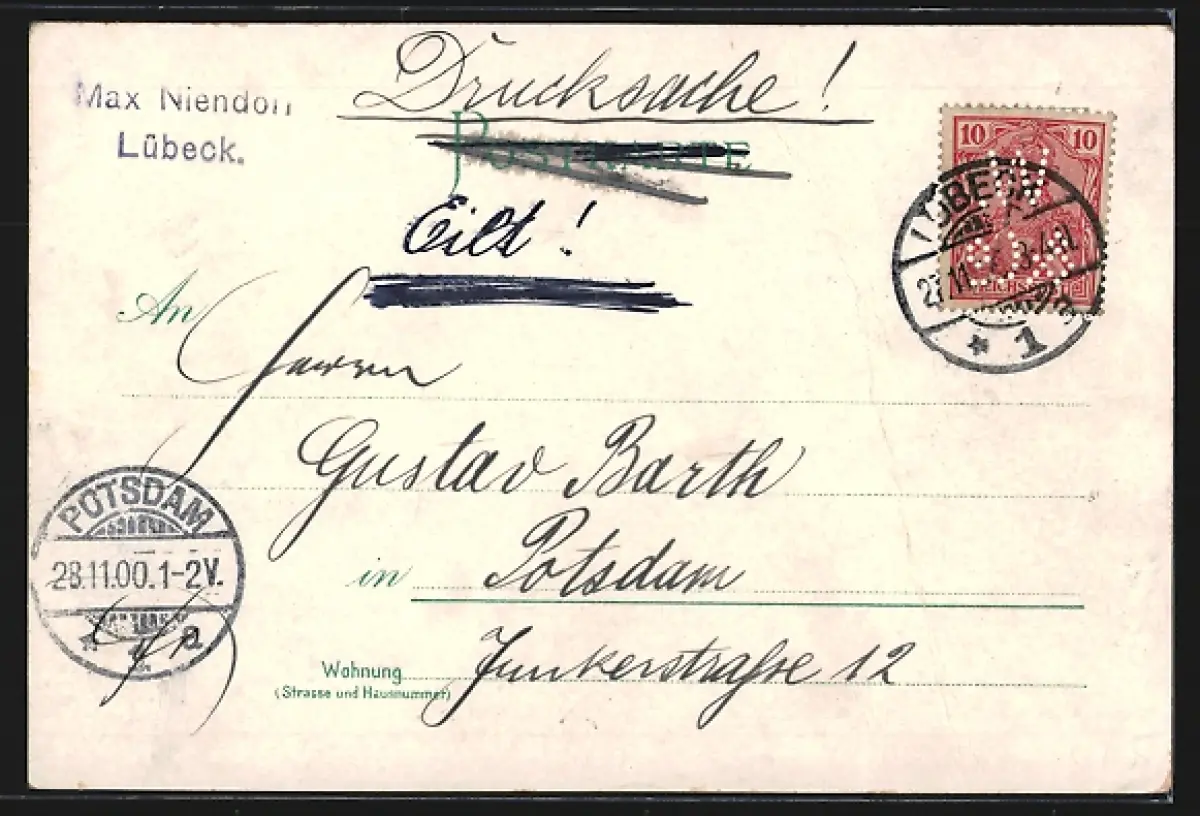 Max Niendorf
Lübeck.
Drucksache!
POSTKARTE
Eilt!
10 10
LÜBECK
27.11.
* 1
An
Herrn
Gustav Barth
in Potsdam
Wohnung Junkerstraße 12
(Strasse und Hausnummer)
POTSDAM
28.11.00.1-2V.